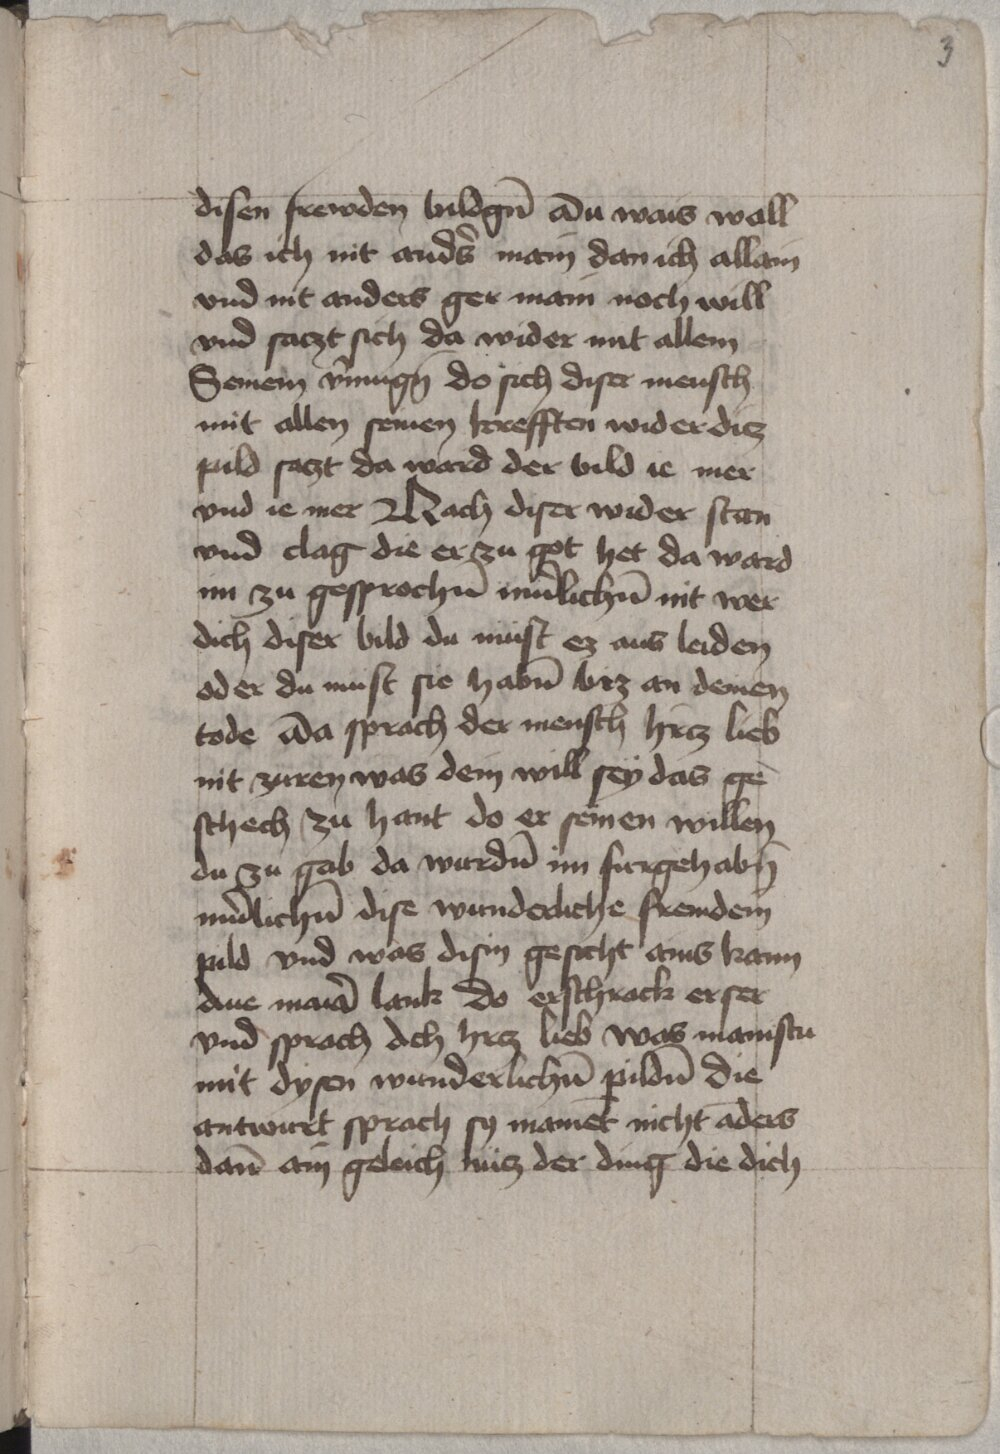 3
disen frewden bildgn̄ Du wais wall
das ich nit anders̄ main dan ich allain
vnd nit anders ger main noch will
vnd saczt sich da wider mit allem
Seinem v̄mugn̄ do sich diser mensch
mit allen seinen krefften wider dicz
pild saczt da ward der bild ie mer
vnd ie mer Nach diser wider stan
vnd clag die er zu got het da ward
im zu gesprochn̄ inn̄lichn̄ nit wer
dich diser bild du müst ez aus leiden
oder du must sie habn̄ bicz an deinen
tode Da sprach der mensch hrcz lieb
nit zuren was dein will sey das ge
schech zu hant do er seinen willen
du zu gab da wurdn̄ im furgehabn̄
inn̄lichn̄ dise wunderliche fremdem
pild vnd was disin gesicht ains kaum
aue maria lank do erschrack er ser
vnd sprach Ach hrcz lieb was mainstu
mit dysen wunderlichn̄ pildn̄ die
antwurt sprach sy mainet nicht āders
dan̄ ain geleich nüz der ding die dich